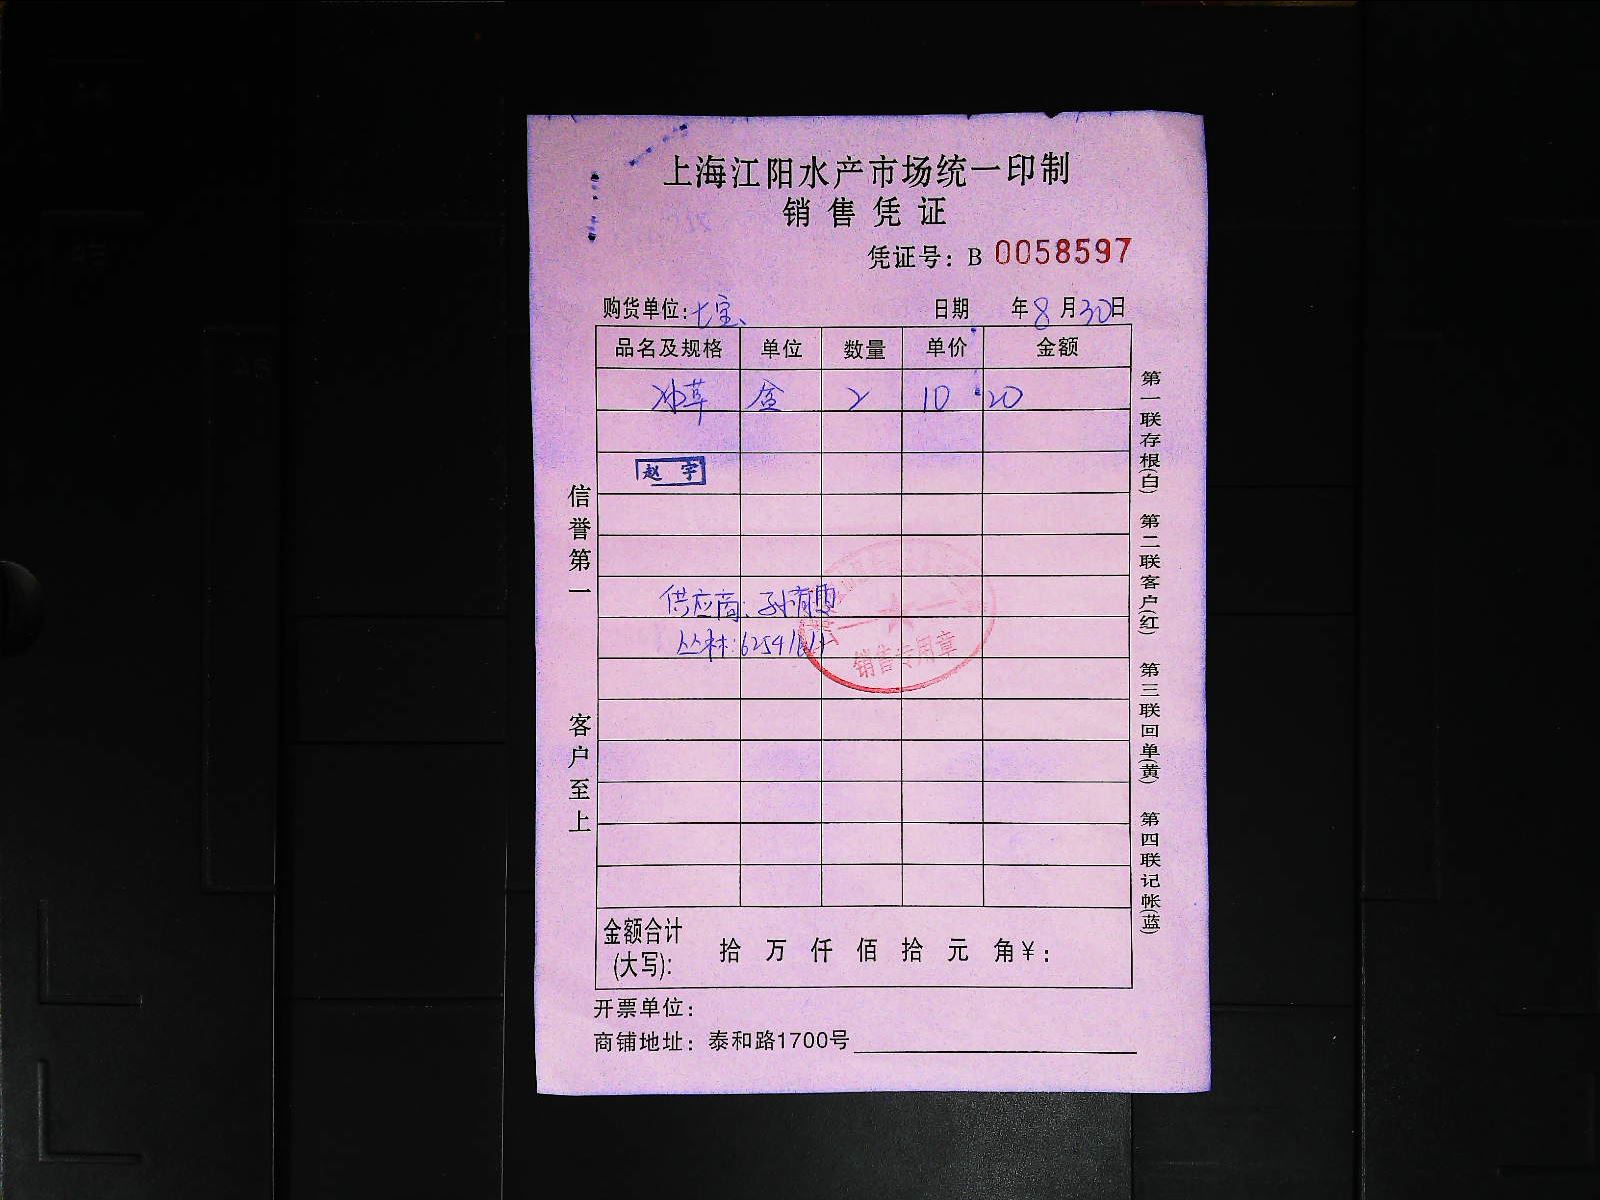 上海江阳水产市场统一印制
销售凭证
凭证号：B 0058597
购货单位：七宝 日期 年8月30日
品名及规格 单位 数量 单价 金额
冰草 盒 2 10 20
赵宇
供应商：孙情雯
丛林：6254
销售专用章
信誉第一
客户至上
第一联存根(白)
第二联客户(红)
第三联回单(黄)
第四联记帐(蓝)
金额合计
(大写)： 拾 万 仟 佰 拾 元 角￥：
开票单位：
商铺地址：泰和路1700号